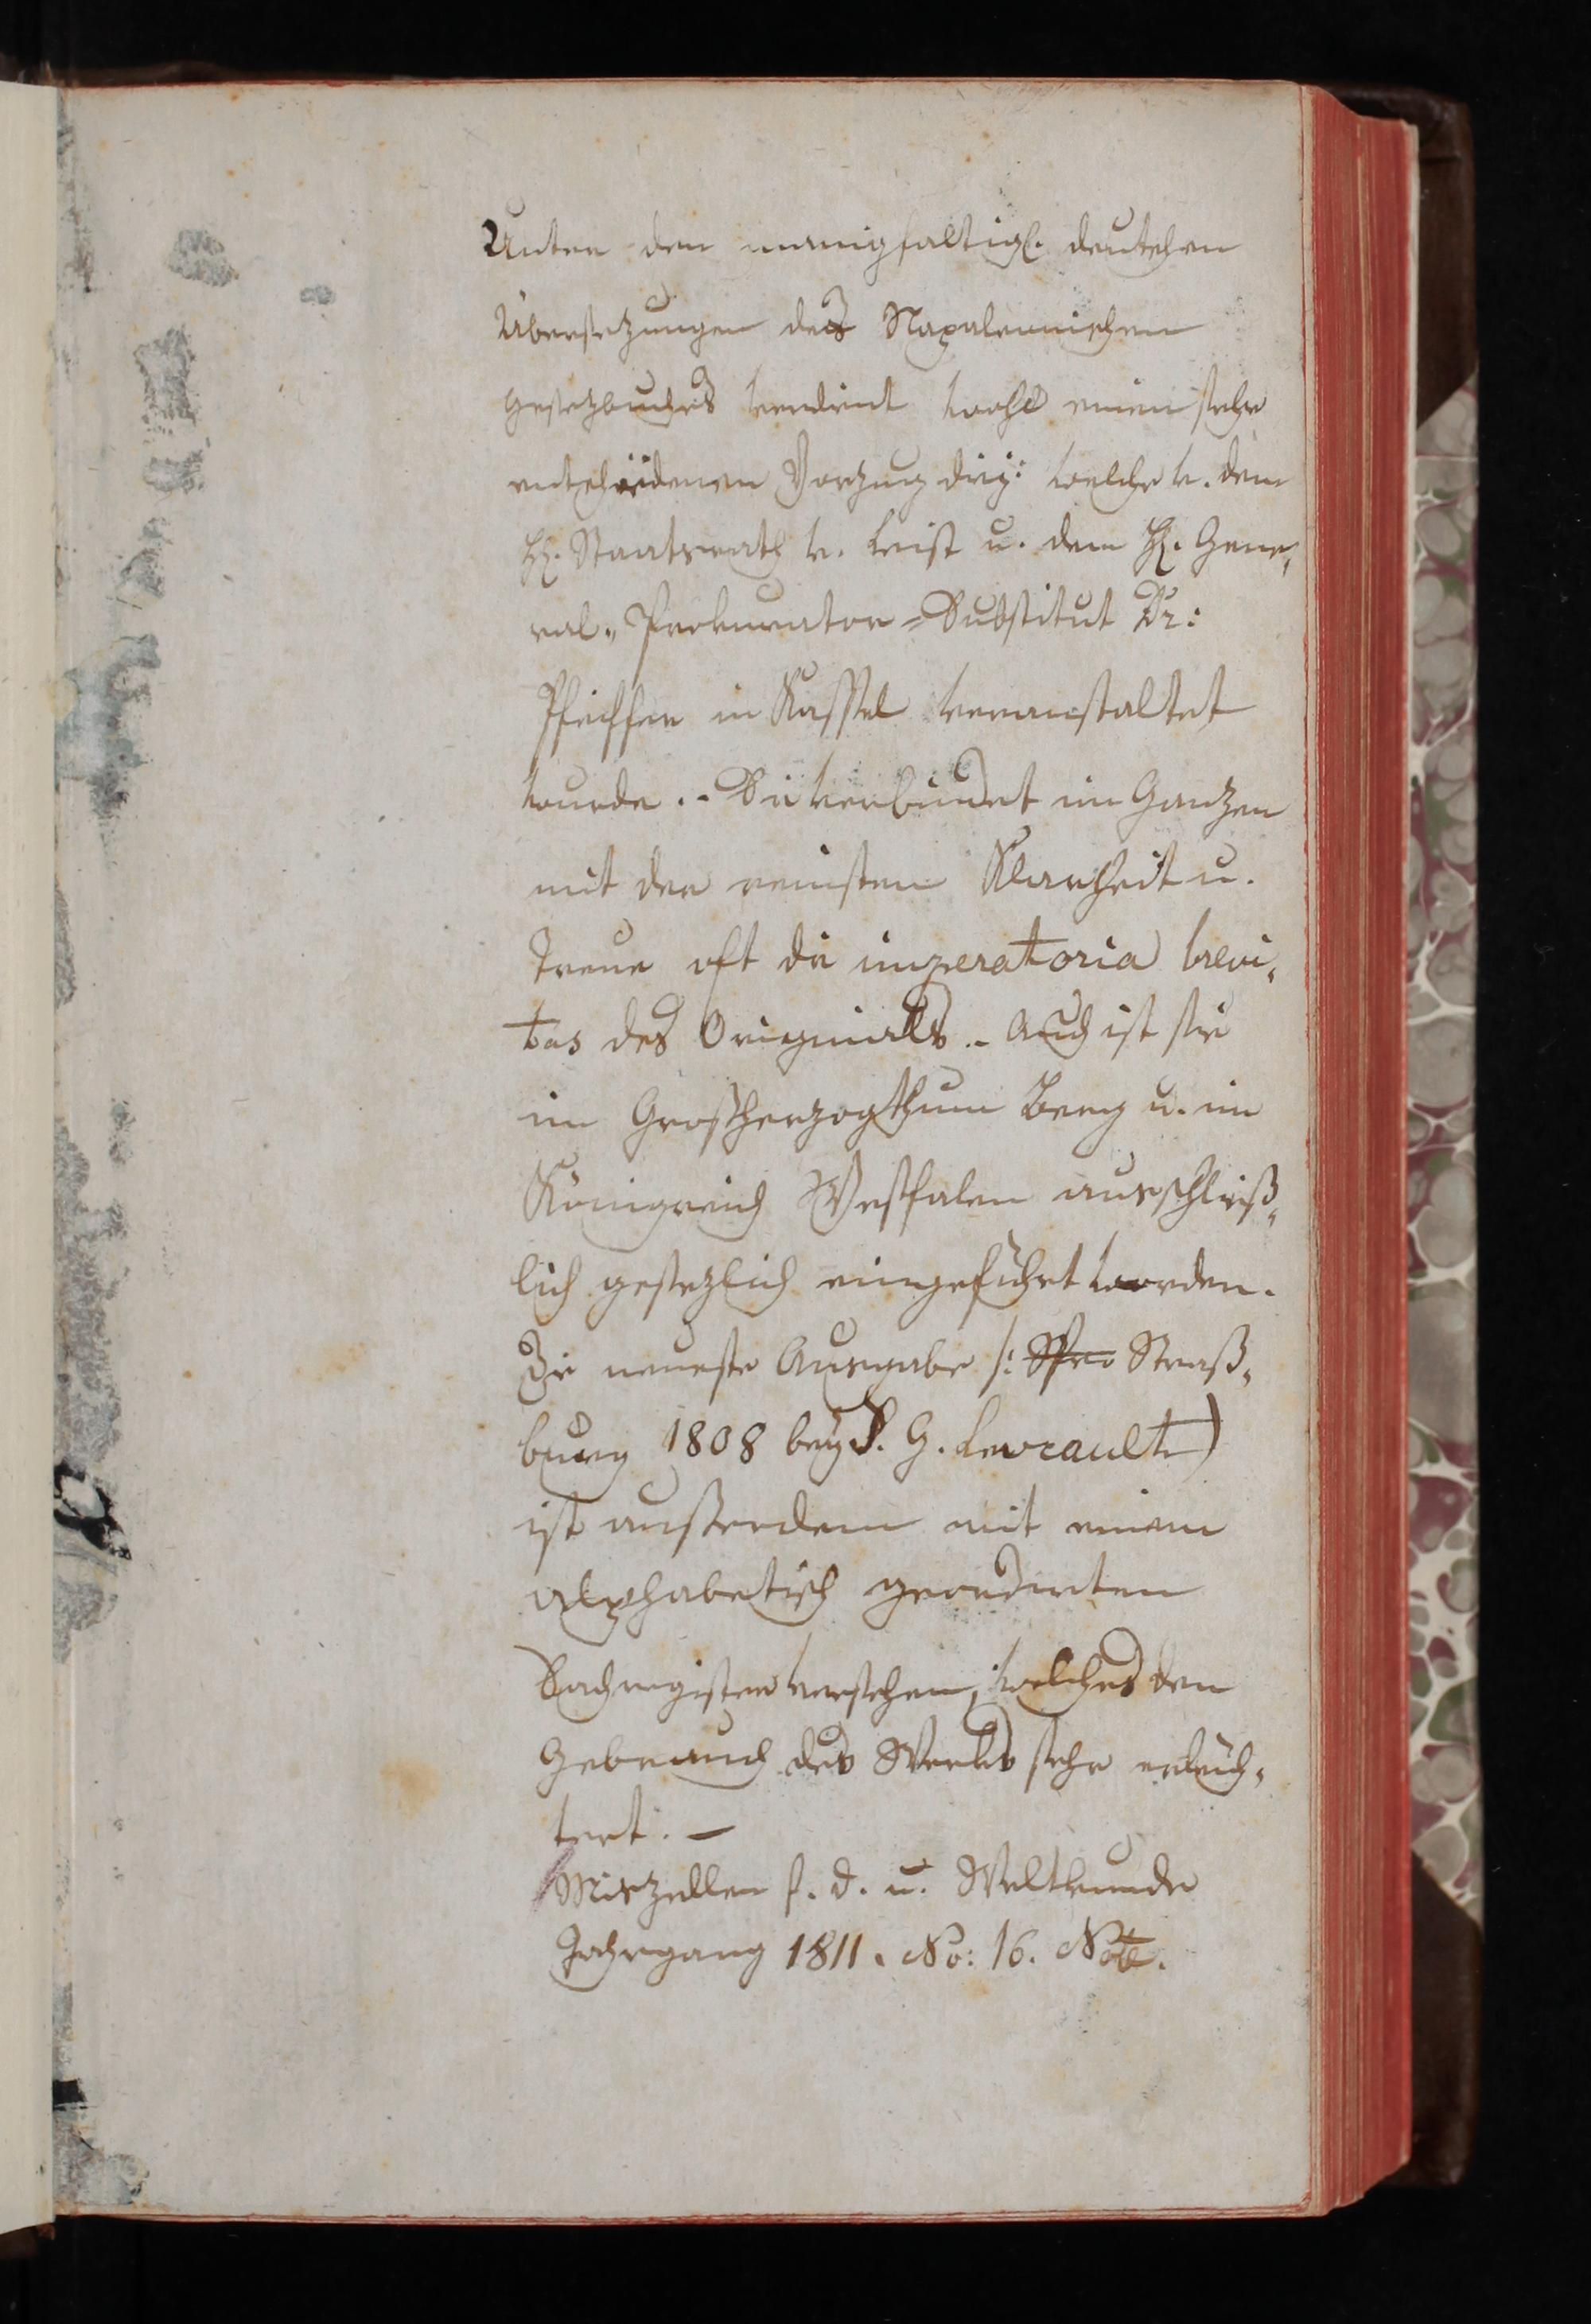 Unter den manigfaltigl. deutschen
Übersetzungen des Napoleonischen
Gesetzbuches verdient wohl einen sehr
entscheidenen Vorzug diej: welche v. dem
H. Staatsrath v. Leist u. dem H. Gene-
ral-Prokurator-Substitut Dr:
Pfeiffer in Kassel veranstaltet
wurde. - Sie verbindet im Ganzen
mit der reinsten Klarheit u.
Treue oft die imperatoria brevi-
tas des Originals. - Auch ist sie
im Großherzogthum Berg u. im
Königreich Westfalen ausschließ-
lich gesezlich eingeführt worden.
Die neueste Ausgabe /: Straß-
burg 1808 bey F. G. Levrault)
ist außerdem mit einem
alphabetisch geordneten
Sachregister versehen, welches den
Gebrauch des Werks sehr erleich-
tert. -
Miszellen f. d. n. Weltkunde
Jahrgang 1811. No: 16. Note.